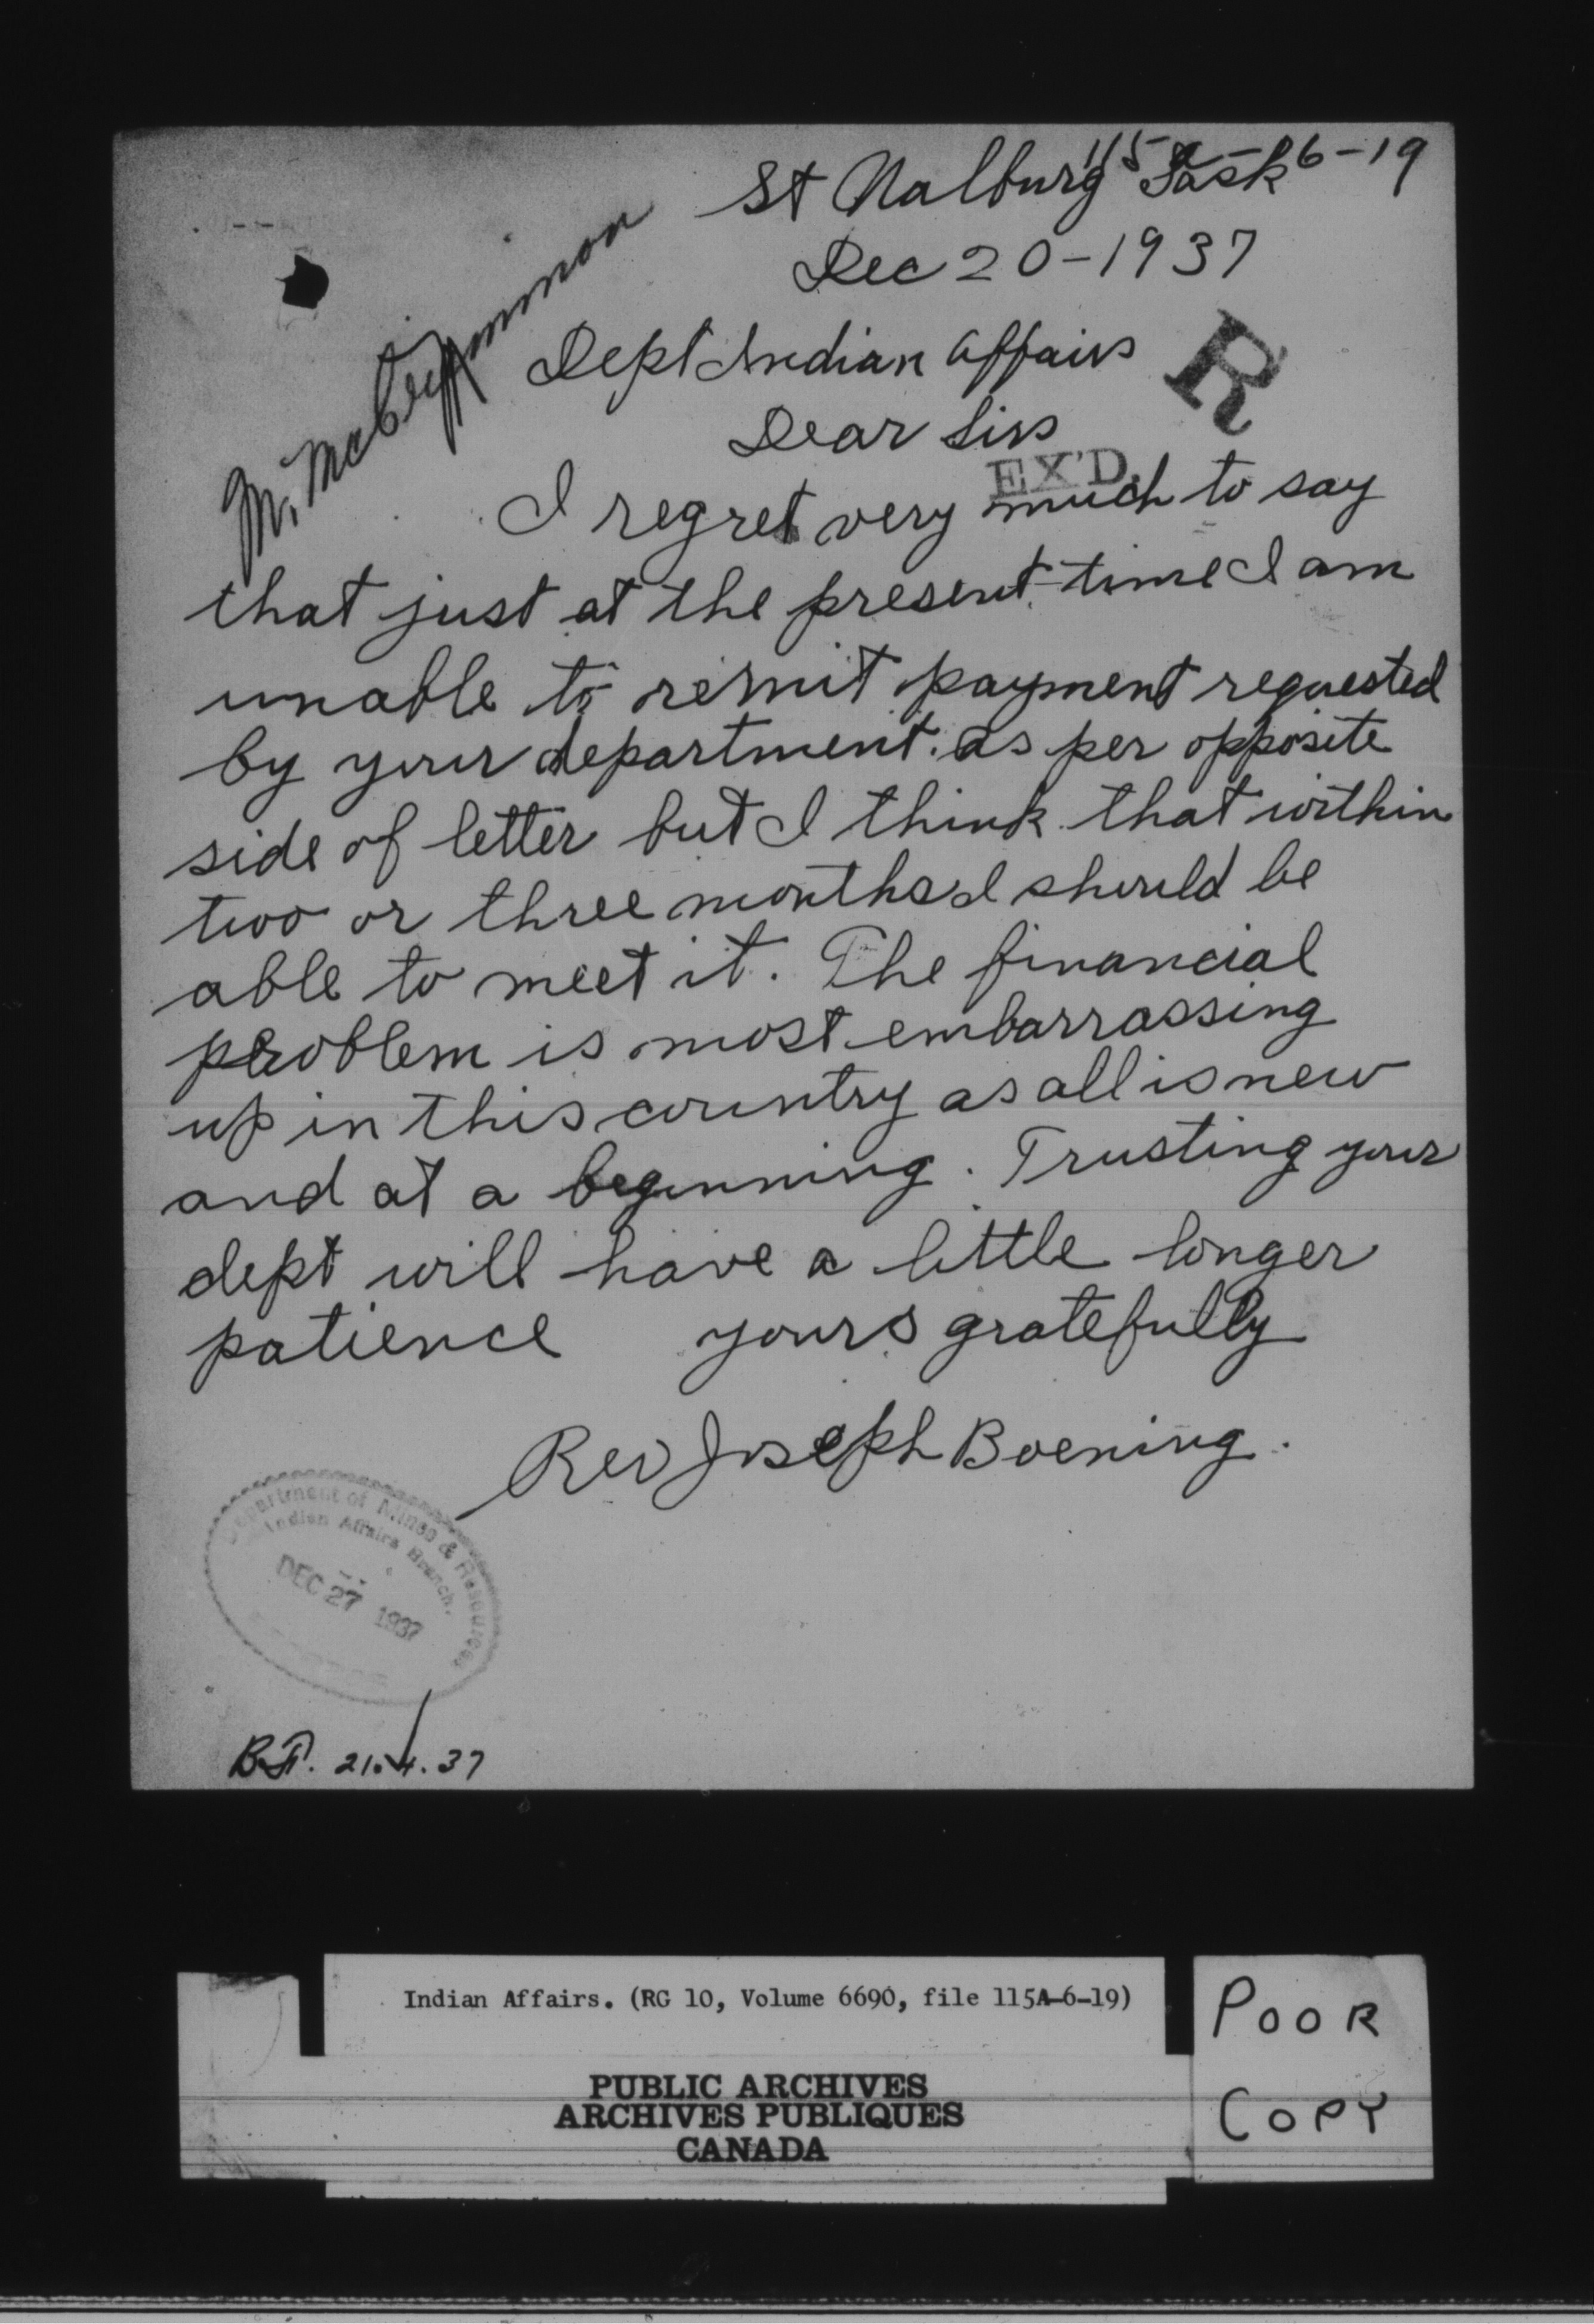 115 A-6-19
St Walburg Sask
Dec 20-1937
Dept Indian Affairs
R
Dear Sirs
EX'D.
I regret very much to say
that just at the present time I am
unable to remit payment requested
by your department. as per opposite
side of letter but I think that within
two or three months I should be
able to meet it. The financial
problem is most embarrassing
up in this country as all is new
and at a beginning. Trusting your
dept will have a little longer
patience yours gratefully
Rev Joseph Boening.
Department of Mines & Resources
Indian Affairs Branch.
DEC 27 1937
21.4.37
Indian Affairs. (RG 10, Volume 6690, file 115A-6-19)
PUBLIC ARCHIVES
ARCHIVES PUBLIQUES
CANADA
POOR
COPY